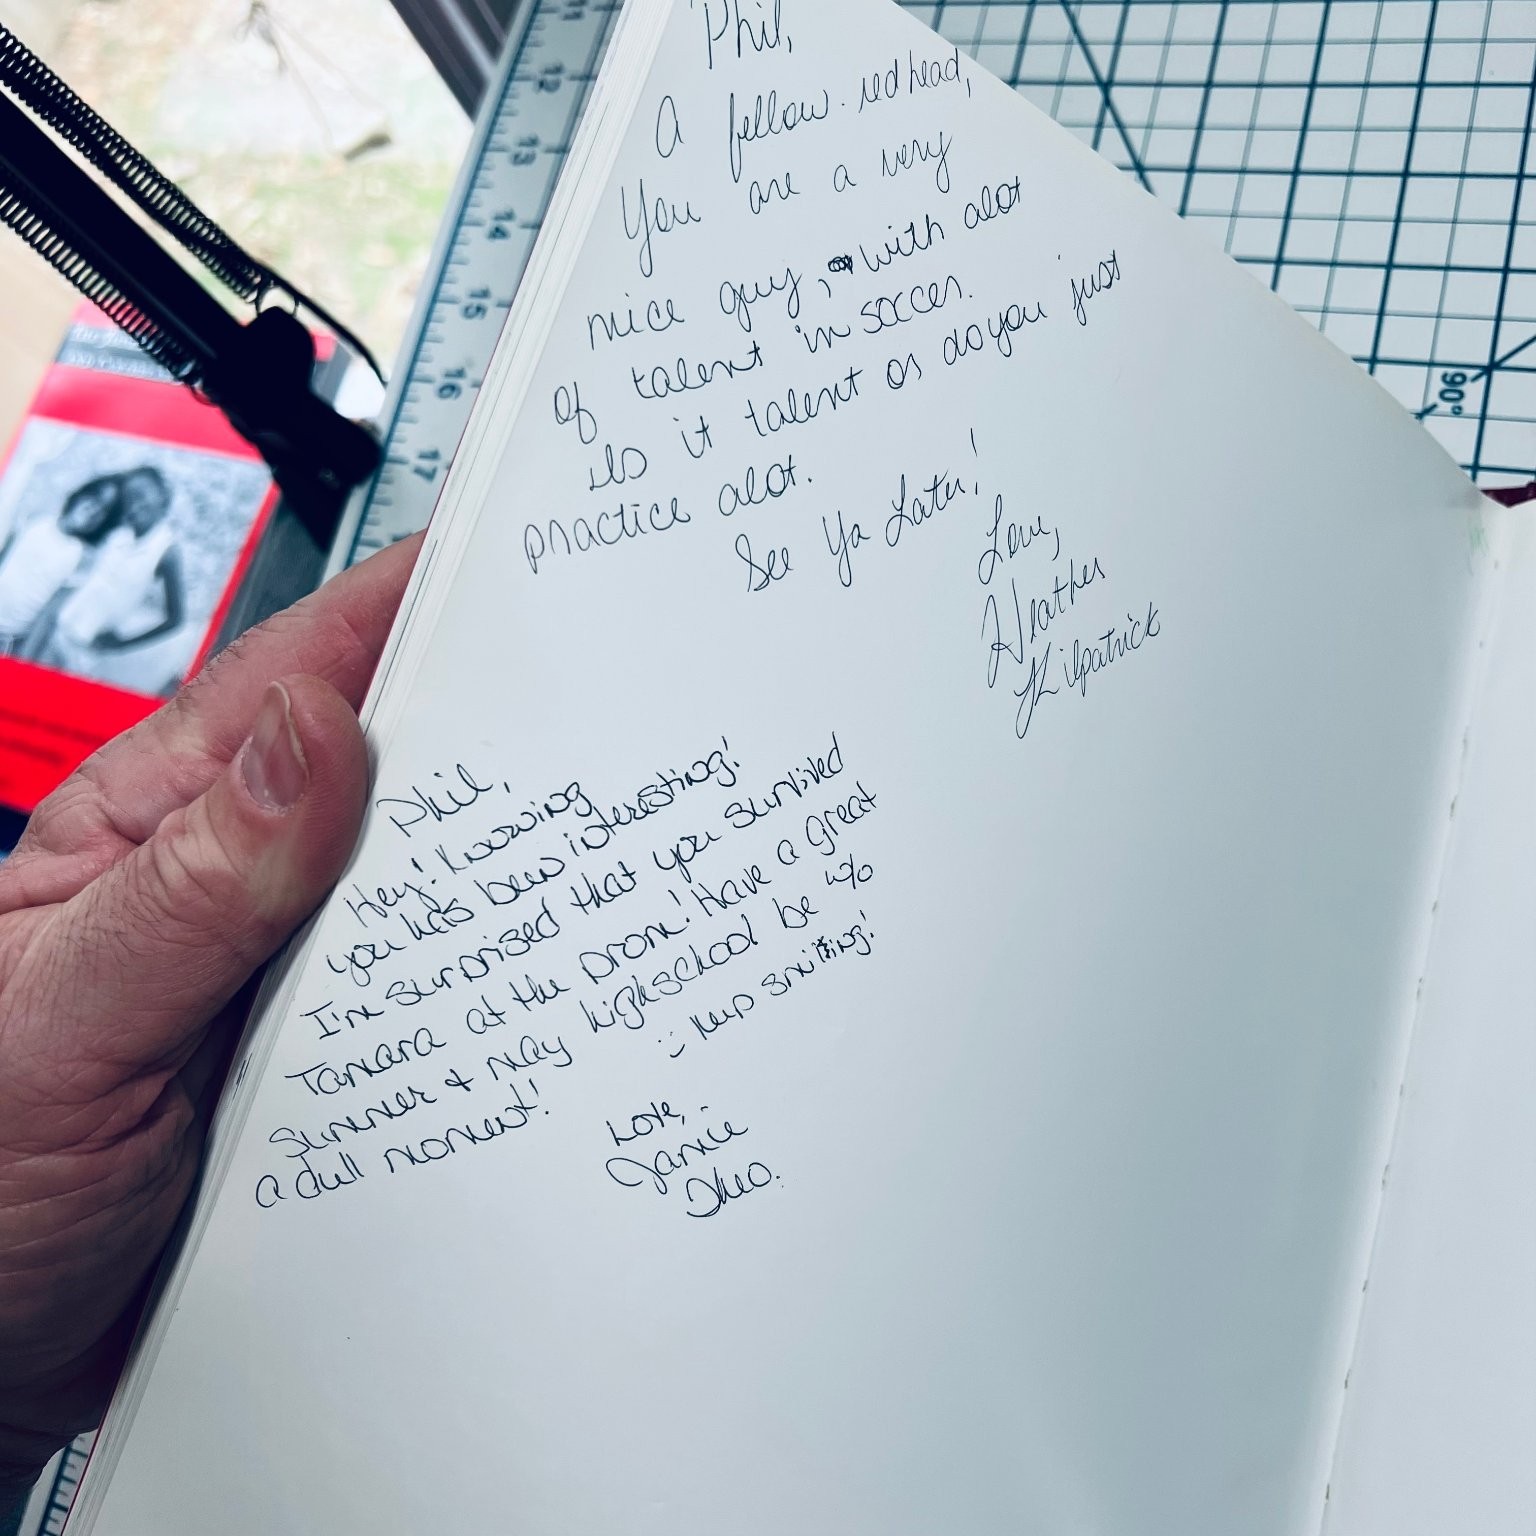 Phil,
A fellow redhead,
You are a very
nice guy, with alot
of talent in soccer.
Is it talent or do you just
practice alot.
See Ya Later!
Love,
Heather
Kilpatrick
Phil,
Hey! Knowing
you has been interesting!
I'm surprised that you survived
Tamara at the prom! Have a great
summer & may highschool be w/o
a dull moment!
:) Keep smiling!
Love,
Jamie
11
12
13
14
15
16
17
90°